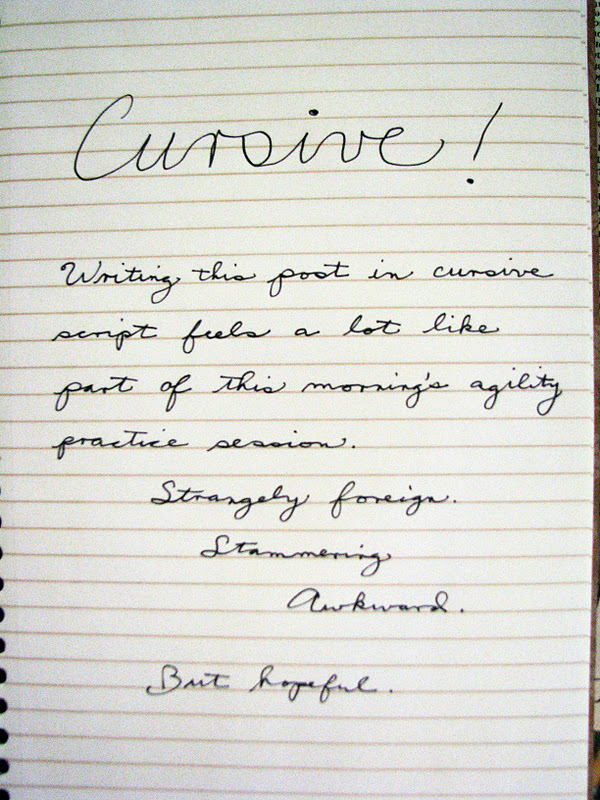 Cursive!
Writing this post in cursive
script feels a lot like
part of this morning's agility
practice session.
Strangely foreign.
Stammering
Awkward.
But hopeful.